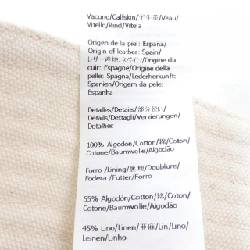 Vitello/Rind/Vitela
Origen de la piel: España/
Origin of leather: Spain/
cuir: Espagne/Origine della
pelle: Spagna/Lederherkunft:
Spanien/Origem da pele:
Espanha
Detalles/Details/
Details/Dettagli/Verzierungen/
Detalhes
100% Algodón/Cotton/棉/Coton/
Cotone/Baumwolle/Algodão
Forro/Lining/
Fodera/Futter/Forro
55% Algodón/Cotton/棉/Coton/
Cotone/Baumwolle/Algodão
45% Lino/Linen/
Leinen/Linho